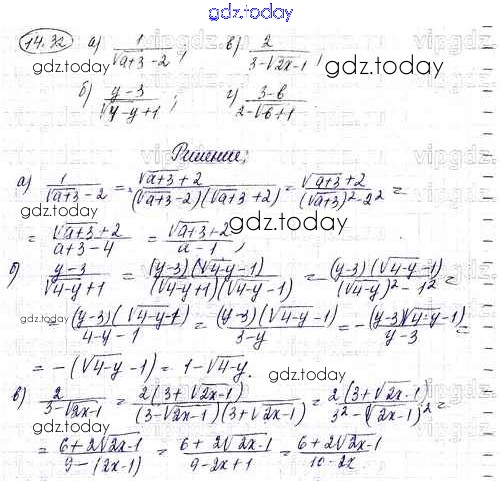 gdz.today
14.32 а) 1/(√(a+3) - 2); в) 2/(3-√(2x-1));
gdz.today gdz.today
б) (y-3)/(√(4-y)+1); г) (3-b)/(2-√(b+1))
Решение:
а) 1/(√(a+3) - 2) = (√(a+3)+2)/((√(a+3)-2)(√(a+3)+2)) = (√(a+3)+2)/((√(a+3))²-2²) =
= (√(a+3)+2)/(a+3-4) = (√(a+3)+2)/(a-1);
gdz.today
б) (y-3)/(√(4-y)+1) = ((y-3)(√(4-y)-1))/((√(4-y)+1)(√(4-y)-1)) = ((y-3)(√(4-y)-1))/((√(4-y))²-1²) =
= ((y-3)(√(4-y)-1))/(4-y-1) = ((y-3)(√(4-y)-1))/(3-y) = -((y-3)(√(4-y)-1))/(y-3) =
= -(√(4-y)-1) = 1-√(4-y).
gdz.today
в) 2/(3-√(2x-1)) = (2(3+√(2x-1)))/((3-√(2x-1))(3+√(2x-1))) = (2(3+√(2x-1)))/(3²-(√(2x-1))²) =
gdz.today gdz.today
= (6+2√(2x-1))/(9-(2x-1)) = (6+2√(2x-1))/(9-2x+1) = (6+2√(2x-1))/(10-2x)